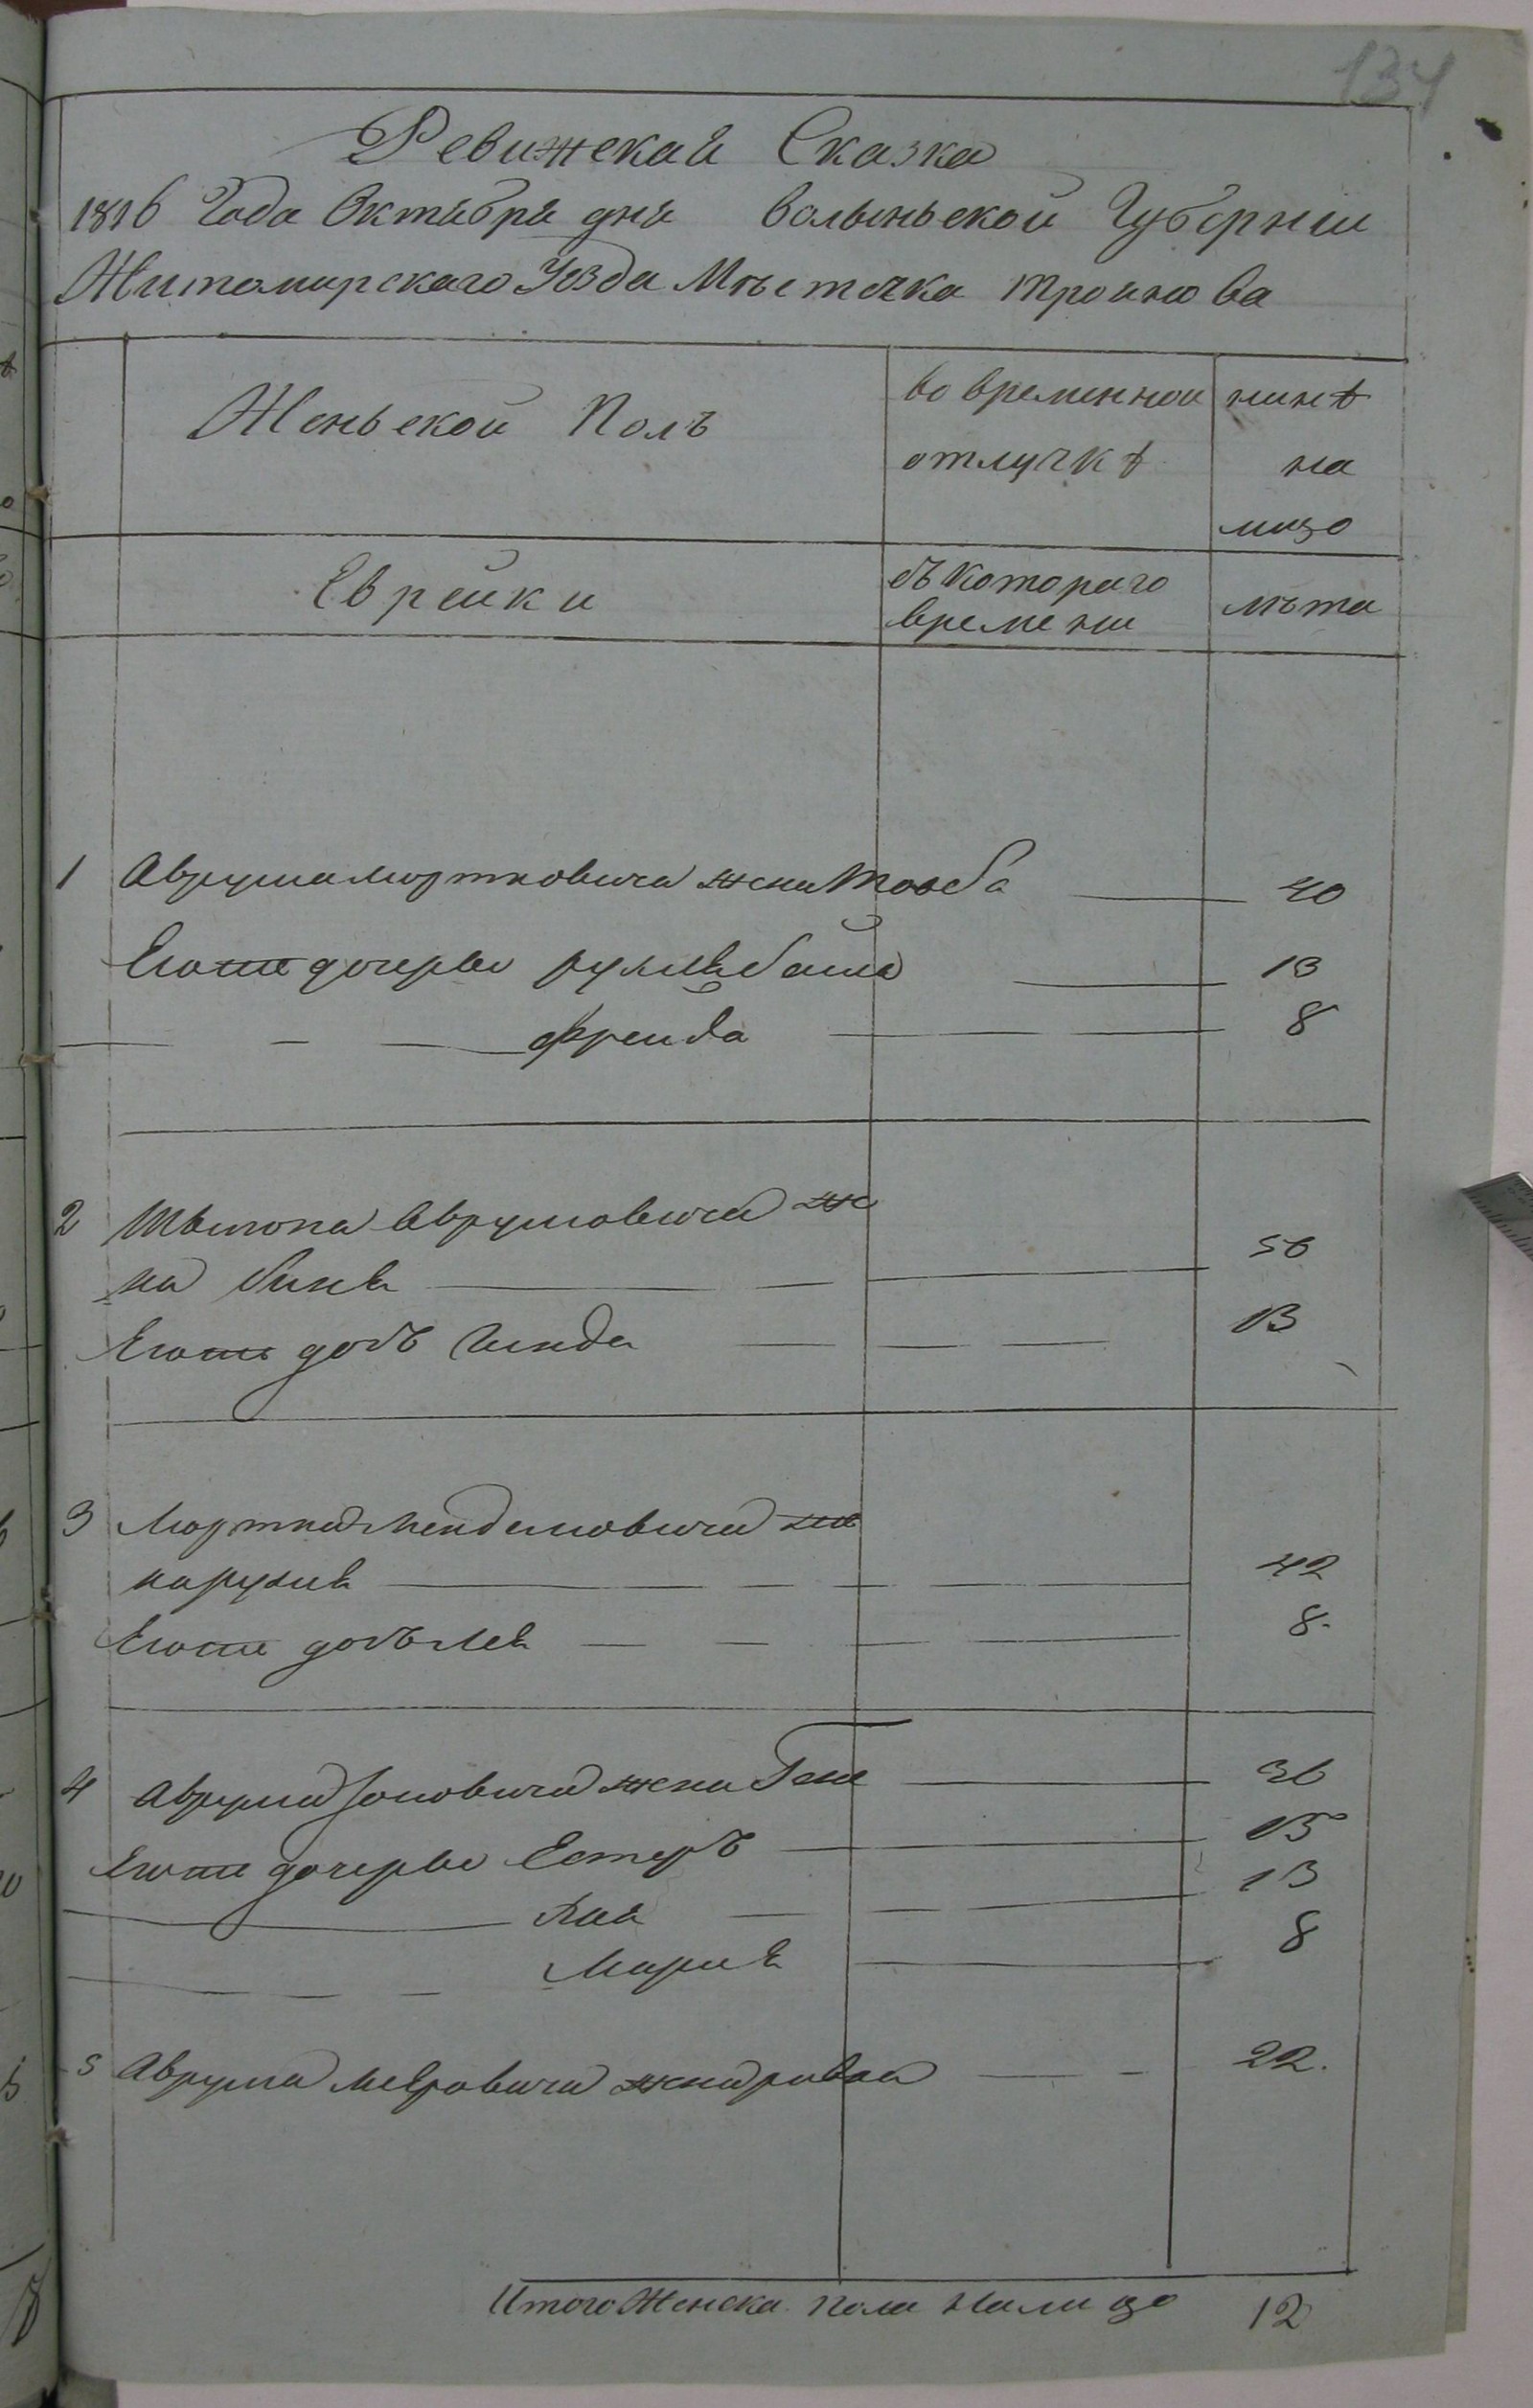 134
Ревижская Сказка
1816 Года Октября дня Волыньской Губернии
Житомирскаго Уезда Мъстечка Троянова
Женьской Полъ
во временной
отлучкѣ
нинѣ
на
лицо
Еврейки
съ котораго
времени
лъта
1 Аврума Мортковича жена Тоѳба 40
Егоже дочерье рухля баша 13
фрейда 8
2 Шлиома Аврумовича же
на биня 56
Егоже дочъ Гинда 13
3 Мортка Менделювича же
на рухля 42
Егоже дочъ Лея 8
4 Аврума жена Геня 36
Егоже дочерье Естеръ 15
Хая 13
Мария 8
5 Аврума Меѣровича жена ривка 22.
Итого Женска пола Налицо 12